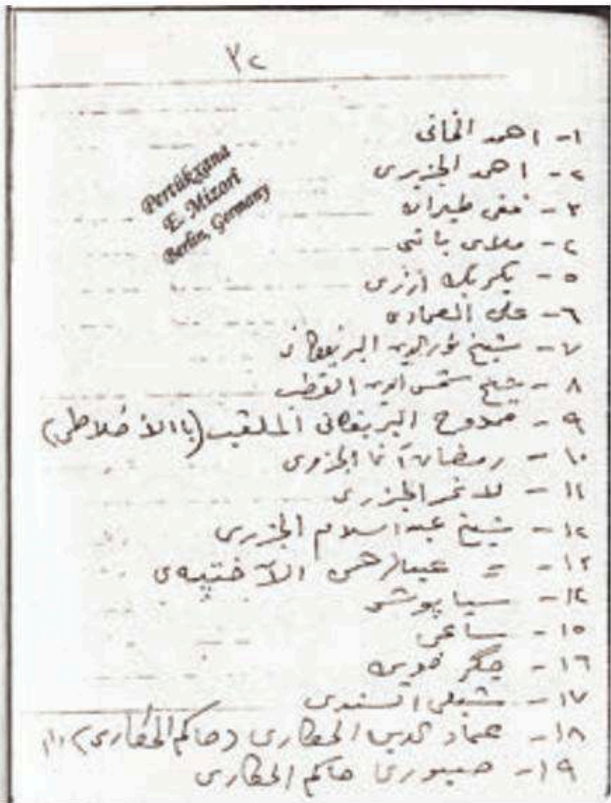 ٣٢
Pertûkxana
E. Mizorî
Berlin, Germany
١- احمد الخانى
٢- احمد الجزيرى
٣- فقى طيران
٤- ملاى باتى
٥- بكر بك ارزى
٦- على العمادى
٧- شيخ نورالدين البريفكانى
٨- شيخ شمس الدين القطب
٩- ممدوح البريفكانى الملقب (باالأخلاطى)
١٠- رمضان آغا الجزرى
١١- لاغر الجزرى
١٢- شيخ عبدالسلام الجزرى
١٣- = عبدالرحمن الآختيپى
١٤- سياپوش
١٥- ساعى
١٦- جگر خوين
١٧- شبلى السندى
١٨- عماد الدين الحكارى (حاكم الحكارى) (١)
١٩- صبورى حاكم الحكارى